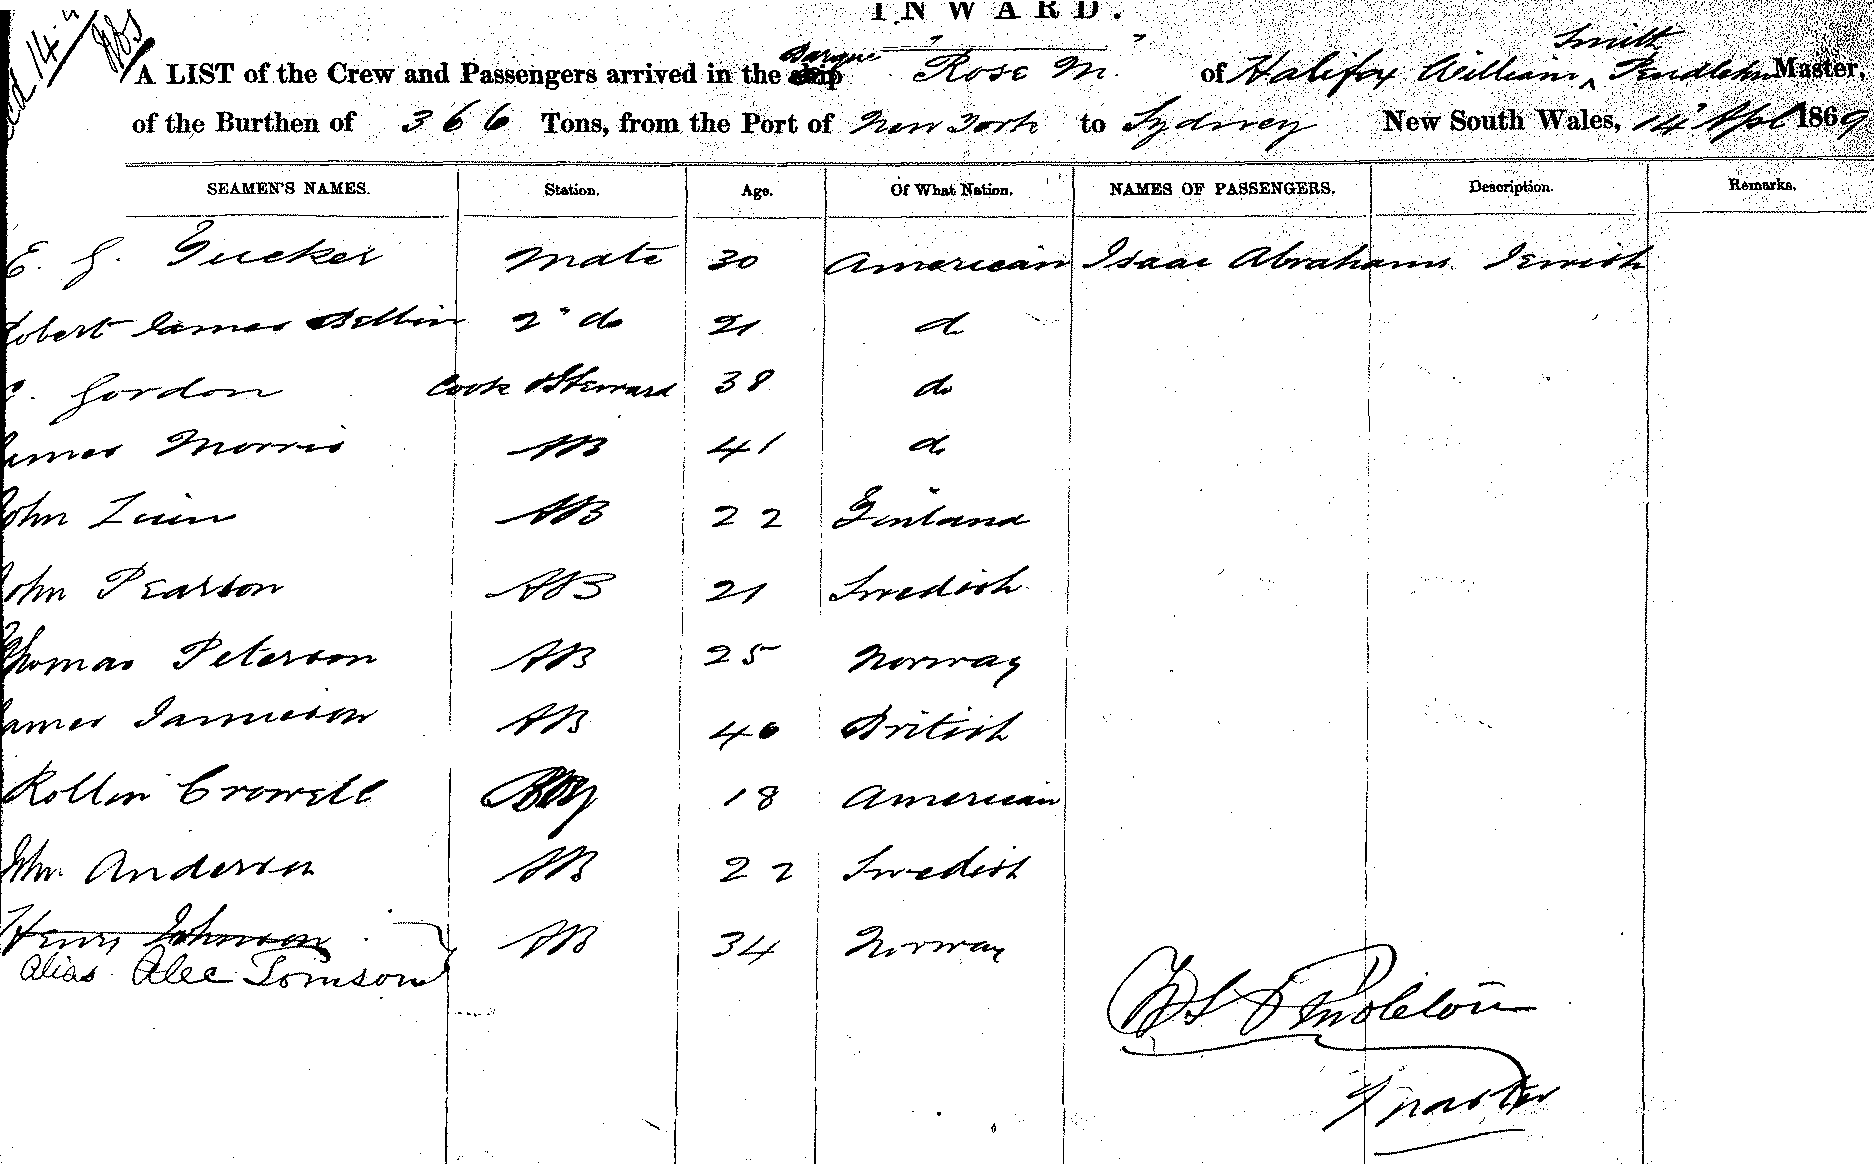 INWARD.
Smith
Barque
A LIST of the Crew and Passengers arrived in the ship "Rose M." of Halifax William Pendleton Master,
of the Burthen of 366 Tons, from the Port of New York to Sydney New South Wales, 14" Apl 1869
SEAMEN'S NAMES. Station. Age. Of What Nation. NAMES OF PASSENGERS. Description. Remarks.
E. G. Tucker Mate 30 American Isaac Abrahams Jewish
Robert James 2" do 21 do
Gordon Cook & Steward 38 do
James Morris AB 41 do
John AB 22 Finland
John Pearson AB 21 Swedish
Thomas Peterson AB 25 Norway
James Jamieson AB 40 British
Rollin Crowell Boy 18 American
John Anderson AB 22 Swedish
Henry Johnson AB 34 Norway
alias Alec Tomson
W S Pendleton
Master